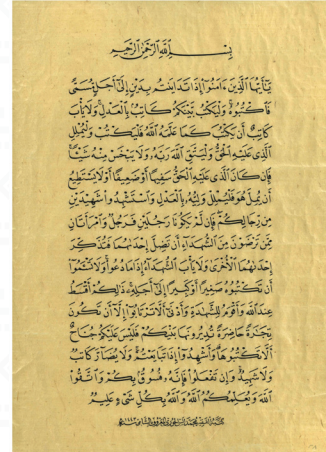 بِسْمِ اللَّهِ الرَّحْمَٰنِ الرَّحِيمِ
يَا أَيُّهَا الَّذِينَ ءَامَنُوا إِذَا تَدَايَنْتُم بِدَيْنٍ إِلَىٰ أَجَلٍ مُّسَمًّى
فَاكْتُبُوهُ وَلْيَكْتُب بَّيْنَكُمْ كَاتِبٌ بِالْعَدْلِ وَلَا يَأْبَ
كَاتِبٌ أَن يَكْتُبَ كَمَا عَلَّمَهُ اللَّهُ فَلْيَكْتُبْ وَلْيُمْلِلِ
الَّذِي عَلَيْهِ الْحَقُّ وَلْيَتَّقِ اللَّهَ رَبَّهُ وَلَا يَبْخَسْ مِنْهُ شَيْئًا
فَإِن كَانَ الَّذِي عَلَيْهِ الْحَقُّ سَفِيهًا أَوْ ضَعِيفًا أَوْ لَا يَسْتَطِيعُ
أَن يُمِلَّ هُوَ فَلْيُمْلِلْ وَلِيُّهُ بِالْعَدْلِ وَاسْتَشْهِدُوا شَهِيدَيْنِ
مِن رِّجَالِكُمْ فَإِن لَّمْ يَكُونَا رَجُلَيْنِ فَرَجُلٌ وَامْرَأَتَانِ
مِمَّن تَرْضَوْنَ مِنَ الشُّهَدَاءِ أَن تَضِلَّ إِحْدَاهُمَا فَتُذَكِّرَ
إِحْدَاهُمَا الْأُخْرَىٰ وَلَا يَأْبَ الشُّهَدَاءُ إِذَا مَا دُعُوا وَلَا تَسْأَمُوا
أَن تَكْتُبُوهُ صَغِيرًا أَوْ كَبِيرًا إِلَىٰ أَجَلِهِ ذَٰلِكُمْ أَقْسَطُ
عِندَ اللَّهِ وَأَقْوَمُ لِلشَّهَادَةِ وَأَدْنَىٰ أَلَّا تَرْتَابُوا إِلَّا أَن تَكُونَ
تِجَارَةً حَاضِرَةً تُدِيرُونَهَا بَيْنَكُمْ فَلَيْسَ عَلَيْكُمْ جُنَاحٌ
أَلَّا تَكْتُبُوهَا وَأَشْهِدُوا إِذَا تَبَايَعْتُمْ وَلَا يُضَارَّ كَاتِبٌ
وَلَا شَهِيدٌ وَإِن تَفْعَلُوا فَإِنَّهُ فُسُوقٌ بِكُمْ وَاتَّقُوا
اللَّهَ وَيُعَلِّمُكُمُ اللَّهُ وَاللَّهُ بِكُلِّ شَيْءٍ عَلِيمٌ